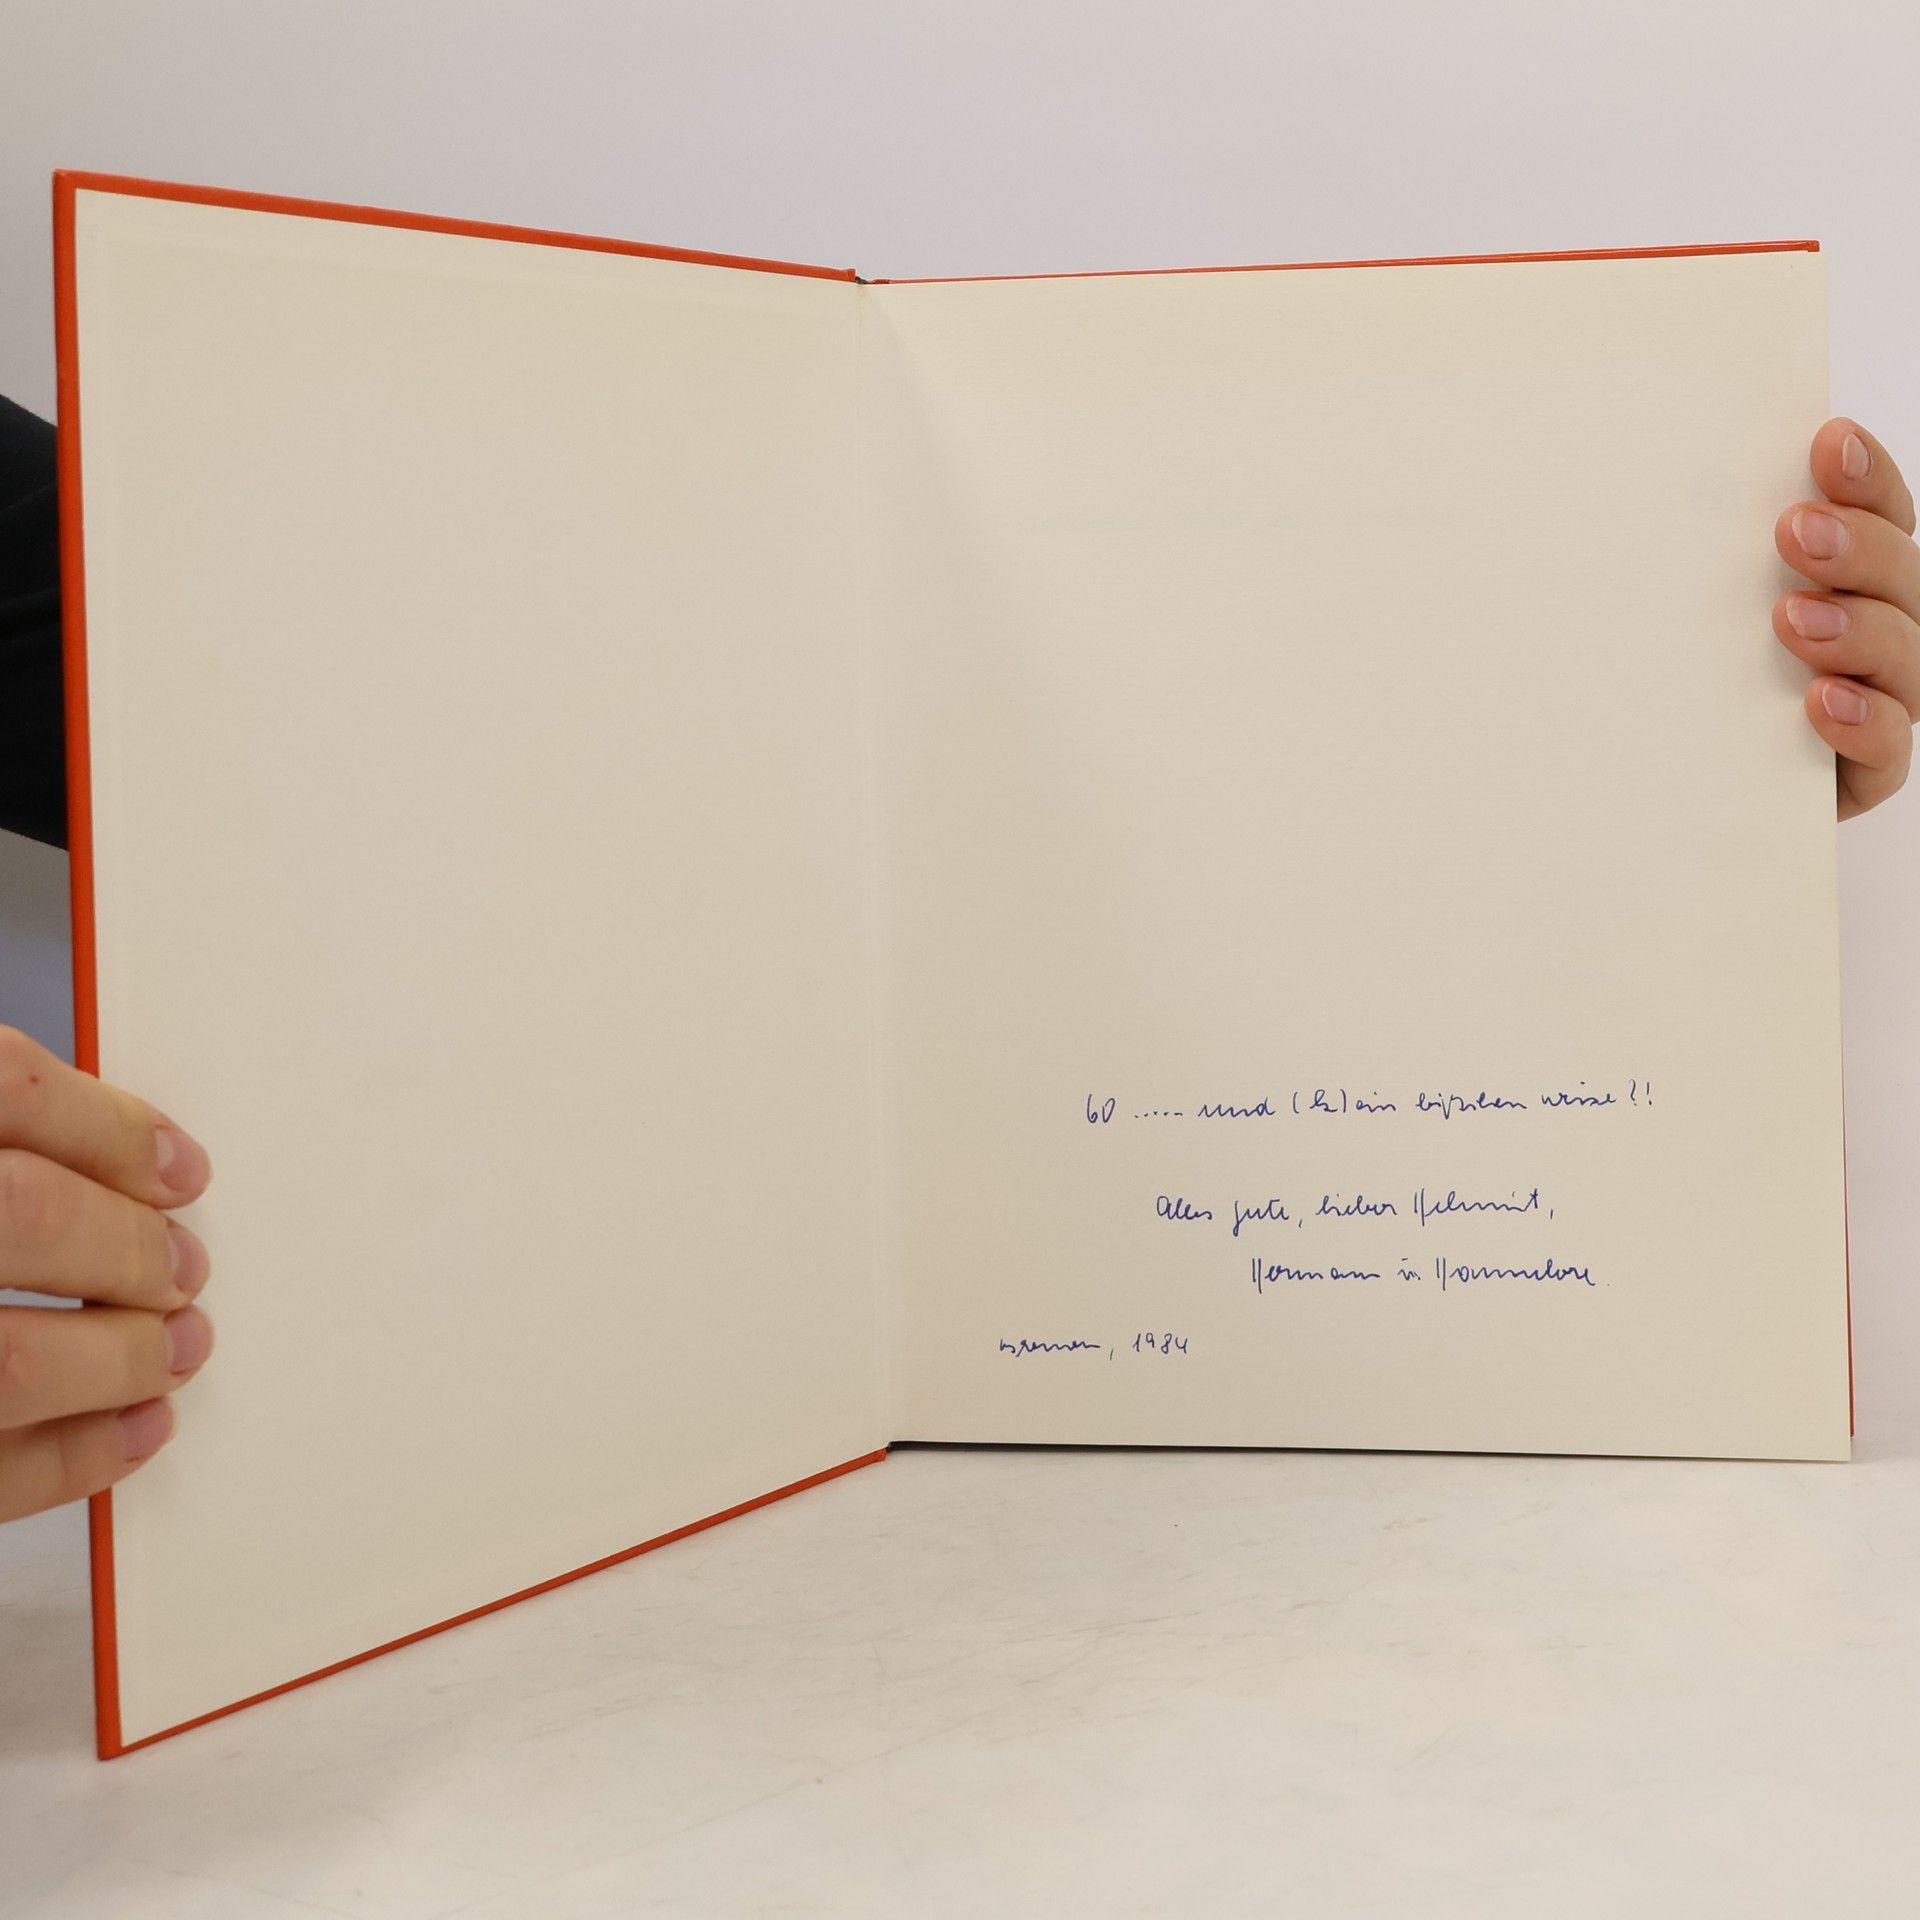 60 ..... und (k)ein bißchen weise?!
Alles gute, lieber Helmut,
Hermann u. Hannelore.
Bremen, 1984